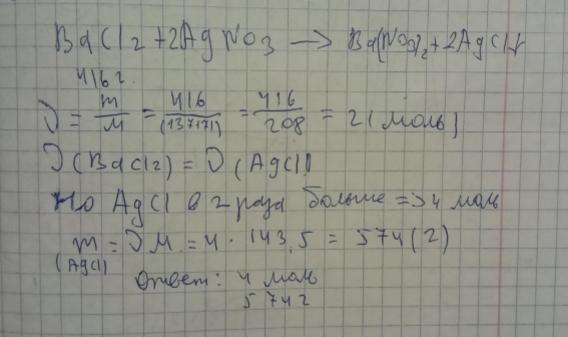 BaCl2 + 2AgNO3 → Ba(NO3)2 + 2AgCl↓
416 г.
ν = m/M = 416/(137+71) = 416/208 = 2 (моль)
ν (BaCl2) = ν (AgCl)
Но AgCl в 2 раза больше => 4 моль
m (AgCl) = νM = 4 · 143,5 = 574 (г)
Ответ: 4 моль
574 г